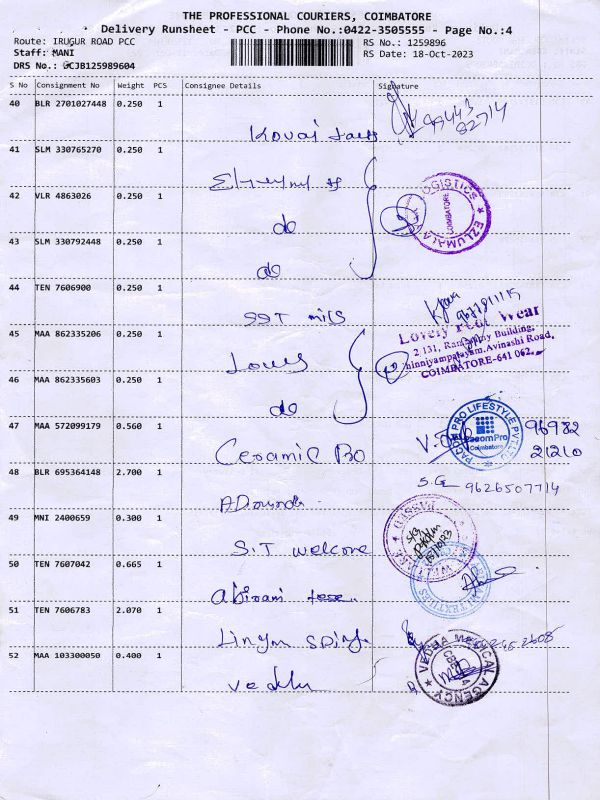 THE PROFESSIONAL COURIERS, COIMBATORE
Delivery Runsheet - PCC - Phone No.:0422-3505555 - Page No.:4
Route: IRUGUR ROAD PCC
RS No.: 1259896
Staff: MANI
RS Date: 18-Oct-2023
DRS No.: CJB125989604
S No Consignment No Weight PCS Consignee Details Signature
40 BLR 2701027448 0.250 1
99443
82714
Kovai
41 SLM 330765270 0.250 1
42 VLR 4863026 0.250 1
LOGISTICS
COIMBATORE
EZLUMALA
do
43 SLM 330792448 0.250 1
do
44 TEN 7606900 0.250 1
SST mils
Lovely Foot Wear
2 131, Ramasamy Building,
Chinniyampalayam, Avinashi Road,
COIMBATORE-641 062.
45 MAA 862335206 0.250 1
46 MAA 862335603 0.250 1
do
47 MAA 572099179 0.560 1
PACOM PRO LIFESTYLE PVT LTD
PacomPro
Coimbatore
96982
21210
Ceramic Bo
48 BLR 695364148 2.700 1
S.G 9626507714
49 MNI 2400659 0.300 1
S.T welcome
50 TEN 7607042 0.665 1
TEXTILES
Abirami
51 TEN 7606783 2.070 1
52 MAA 103300050 0.400 1
VEDHA MEDICAL AGENCY
CBE